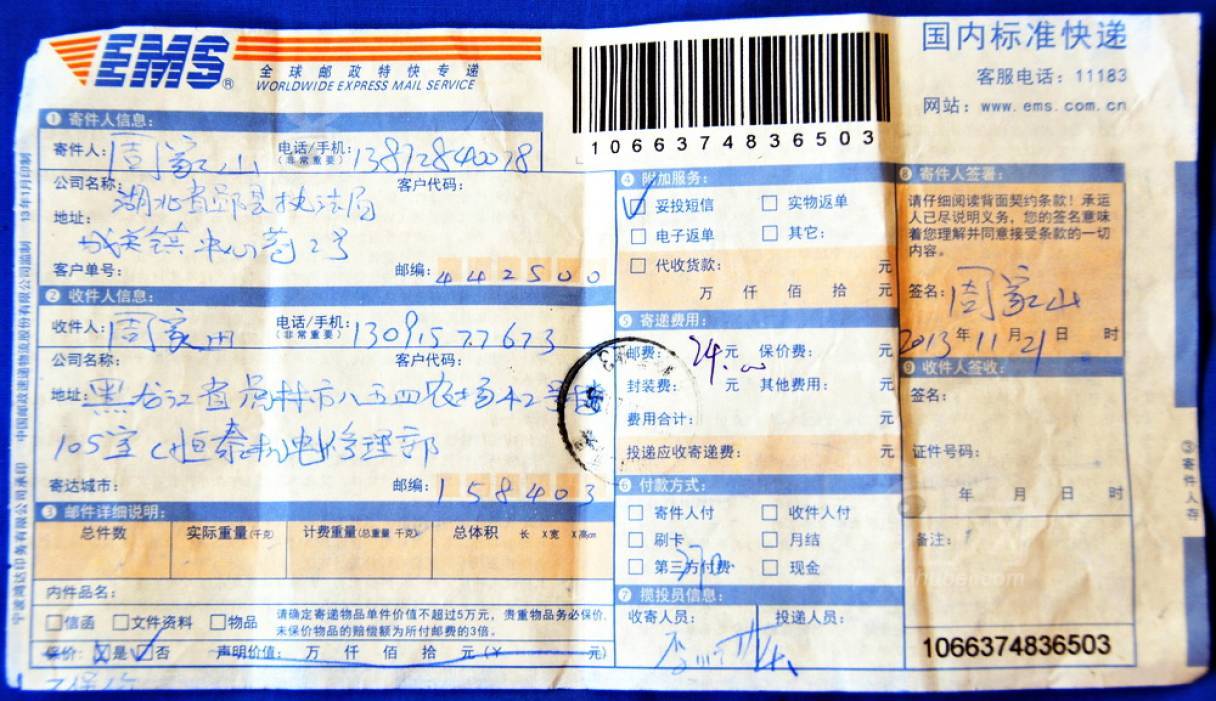 EMS®
全球邮政特快专递
WORLDWIDE EXPRESS MAIL SERVICE
1066374836503
国内标准快递
客服电话：11183
网站：www.ems.com.cn
① 寄件人信息：
寄件人：周家山 电话/手机：（非常重要）13872840078
公司名称： 客户代码：
湖北省郧县执法局
地址：
城关镇 2号
客户单号： 邮编：442500
② 收件人信息：
收件人：周家州 电话/手机：（非常重要）13091577673
公司名称： 客户代码：
地址：黑龙江省虎林市八五四农场42号楼
105室（恒泰机电修理部
寄达城市： 邮编：158403
③ 邮件详细说明：
总件数 实际重量（千克） 计费重量（总重量 千克） 总体积 长 X宽 X高cm
内件品名：
□信函 □文件资料 □物品 请确定寄递物品单件价值不超过5万元，贵重物品务必保价，
未保价物品的赔偿额为所付邮费的3倍。
保价：□是 □否 声明价值： 万 仟 佰 拾 元（¥ 元）
④ 附加服务：
☑ 妥投短信 □ 实物返单
□ 电子返单 □ 其它：
□ 代收货款： 元
万 仟 佰 拾 元
⑤ 寄递费用：
邮费：24.00元 保价费： 元
封装费： 元 其他费用： 元
费用合计： 元
投递应收寄递费： 元
⑥ 付款方式：
□ 寄件人付 □ 收件人付
□ 刷卡 □ 月结
□ 第三方付费 □ 现金
⑦ 揽投员信息：
收寄人员： 投递人员：
⑧ 寄件人签署：
请仔细阅读背面契约条款！承运
人已尽说明义务，您的签名意味
着您理解并同意接受条款的一切
内容。
签名：周家山
2013年11月21日 时
⑨ 收件人签收：
签名：
证件号码：
年 月 日 时
备注：
1066374836503
③寄件人存
宁波鸿达印务有限公司承印 中国邮政速递物流股份有限公司监制 13年1月印制